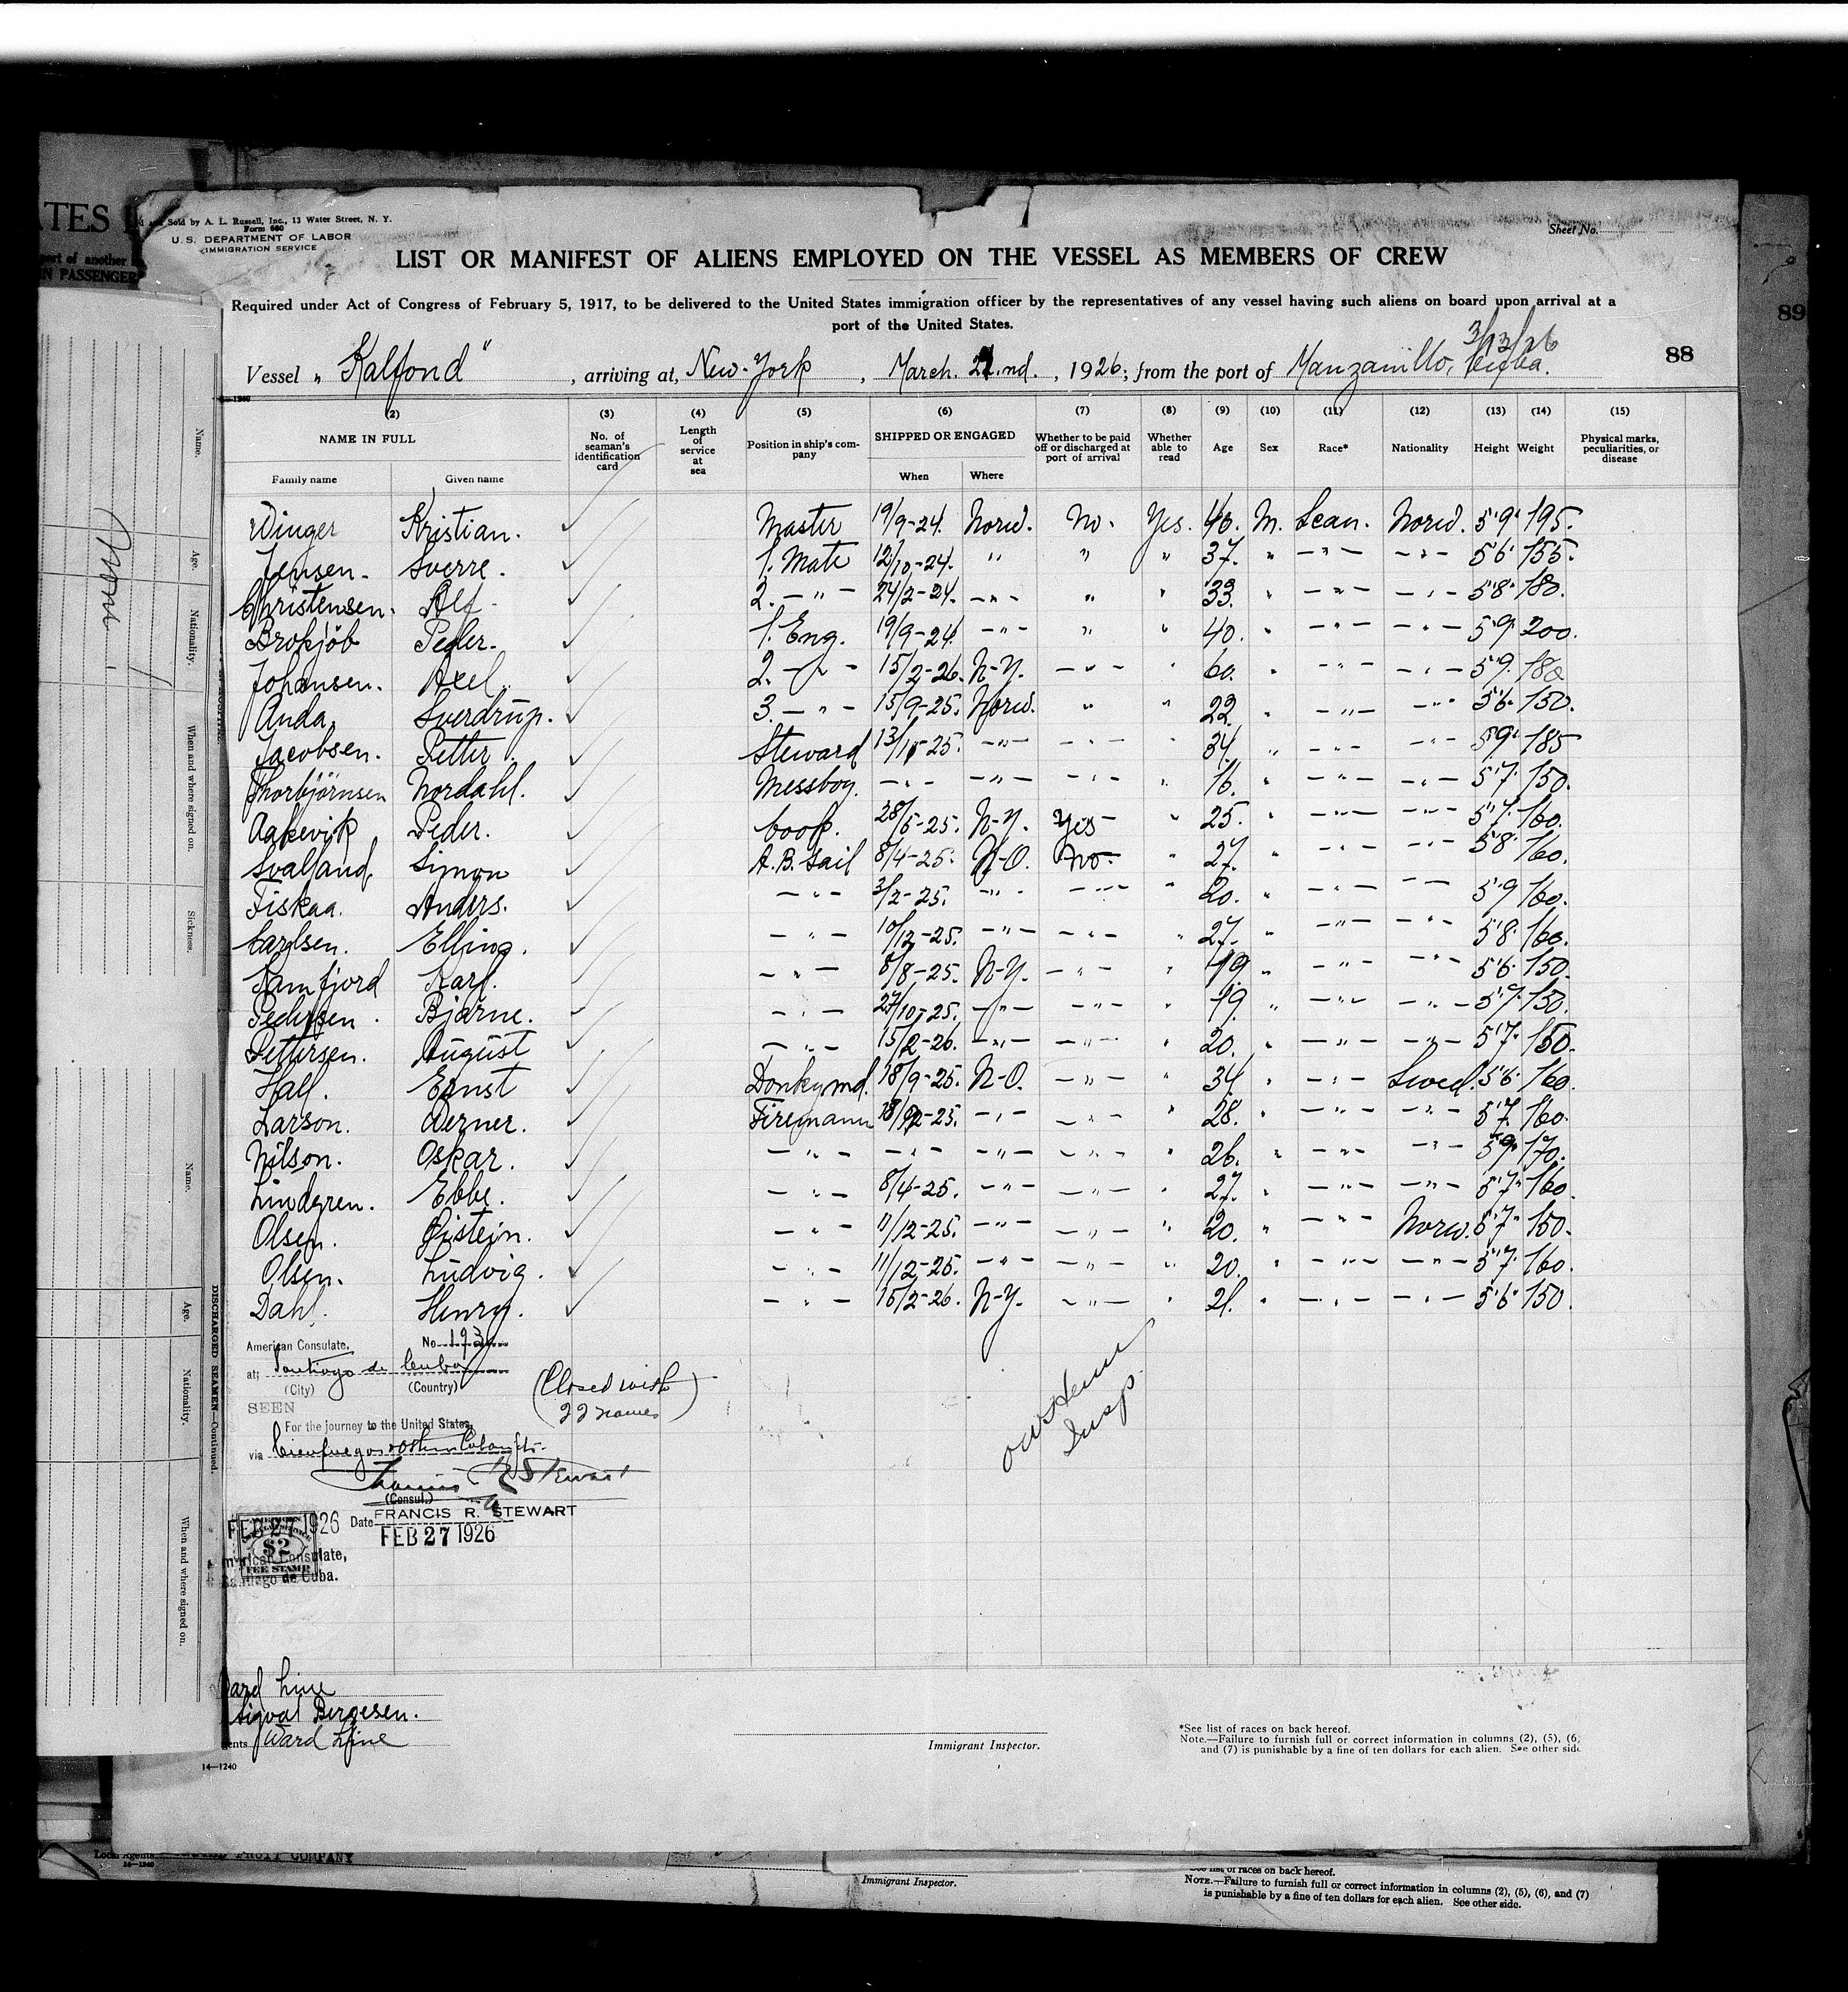 Sold by A. L. Russell, Inc., 13 Water Street, N. Y.
Form 680
U. S. DEPARTMENT OF LABOR
IMMIGRATION SERVICE
Sheet No.
LIST OR MANIFEST OF ALIENS EMPLOYED ON THE VESSEL AS MEMBERS OF CREW
Required under Act of Congress of February 5, 1917, to be delivered to the United States immigration officer by the representatives of any vessel having such aliens on board upon arrival at a
port of the United States.
3/13/26
88
89
Vessel "Kalfond", arriving at, New-York, March. nd., 1926; from the port of Manzanillo, Cuba.
(2) (3) (4) (5) (6) (7) (8) (9) (10) (11) (12) (13) (14) (15)
NAME IN FULL No. of seaman's identification card Length of service at sea Position in ship's company SHIPPED OR ENGAGED Whether to be paid off or discharged at port of arrival Whether able to read Age Sex Race* Nationality Height Weight Physical marks, peculiarities, or disease
Family name Given name When Where
Winger Kristian. Master 19/9-24. Norw. No. Yes. 40. M. Scan. Norw. 5'9" 195.
Jensen. Sverre. 1. Mate 12/10-24. " " " 37. " -"- -"- 5'6" 155.
Christensen. Alf. 2. -"- 24/2-24. -"- " " 33. " -"- -"- 5'8" 180.
Brokjöb Peder. 1. Eng. 19/9-24. -"- " " 40. " -"- -"- 5'9" 200.
Johansen. Axel. 2. -"- 15/2-26. N-Y. -"- " 60. " -"- -"- 5'9. 180
Anda. Sverdrup. 3. -"- 15/9-25. Norw. " " 22. " -"- -"- 5'6. 150.
Jacobsen. Petter. Steward 13/11-25. -"- -"- " 34. " -"- -"- 5'9" 185
Thorbjörnsen Nordahl. Messboy. -"- -"- -"- " 16. " -"- -"- 5'7. 150.
Aakevik Peder. Cook. 28/5-25. N-Y. Yes " 25. " -"- -"- 5'7. 160.
Svaland. Simon A.B. Sail 8/4-25. N-O. No- " 27. " -"- -"- 5'8. 160.
Fiskaa. Anders. -"- 3/2-25. -"- -"- " 20. " -"- -"- 5'9 160.
Carlsen. Elling. -"- 10/12-25. -"- -"- " 27. " -"- -"- 5'8. 160.
Ramfjord Karl. -"- 8/8-25. N-Y. -"- " 19 " -"- -"- 5'6. 150.
Pedersen. Bjarne. -"- 27/10-25. -"- -"- " 19. " -"- -"- 5'7. 150.
Pettersen. August -"- 15/2-26. -"- -"- " 20. " -"- -"- 5'7" 150.
Hall. Ernst Donkymd. 18/9-25. N-O. -"- " 34 " -"- Swed. 5'6. 160.
Larson. Werner. Firemann 18/12-25. -"- -"- " 28. " -"- -"- 5'7. 160.
Nilson. Oskar. -"- -"- -"- -"- " 26. " -"- -"- 5'9" 170.
Lindgren. Ebbe. -"- 8/4-25. -"- -"- " 27. " -"- -"- 5'7" 160.
Olsen. Øistein. -"- 11/12-25. -"- -"- " 20. " -"- Norw. 5'7" 150.
Olsen. Ludvig. -"- 11/12-25. -"- -"- " 20. " -"- -"- 5'7. 160.
Dahl. Henry. -"- 15/2-26. N-Y. -"- " 21. " -"- -"- 5'6" 150.
American Consulate. No 193
at; Santiago de Cuba
(City) (Country)
(Closed with
22 names)
SEEN
For the journey to the United States,
via Cienfuegos
Francis R Stewart
(Consul.)
FRANCIS R. STEWART
FEB 27 1926 Date FEB 27 1926
$2
FEE STAMP
American Consulate,
Santiago de Cuba.
Insp.
Ward Line
Sigval Bergesen.
Ward Line
Immigrant Inspector.
*See list of races on back hereof.
Note.—Failure to furnish full or correct information in columns (2), (5), (6,
and (7) is punishable by a fine of ten dollars for each alien. See other side
14—1240
Local Agents FRUIT COMPANY
Immigrant Inspector.
See list of races on back hereof.
NOTE.—Failure to furnish full or correct information in columns (2), (5), (6), and (7)
is punishable by a fine of ten dollars for each alien. See other side.
port of another
N PASSENGER
Name.
Age.
Nationality.
When and where signed on.
Sickness.
DISCHARGED SEAMEN—Continued.
Name.
Age.
Nationality.
When and where signed on.